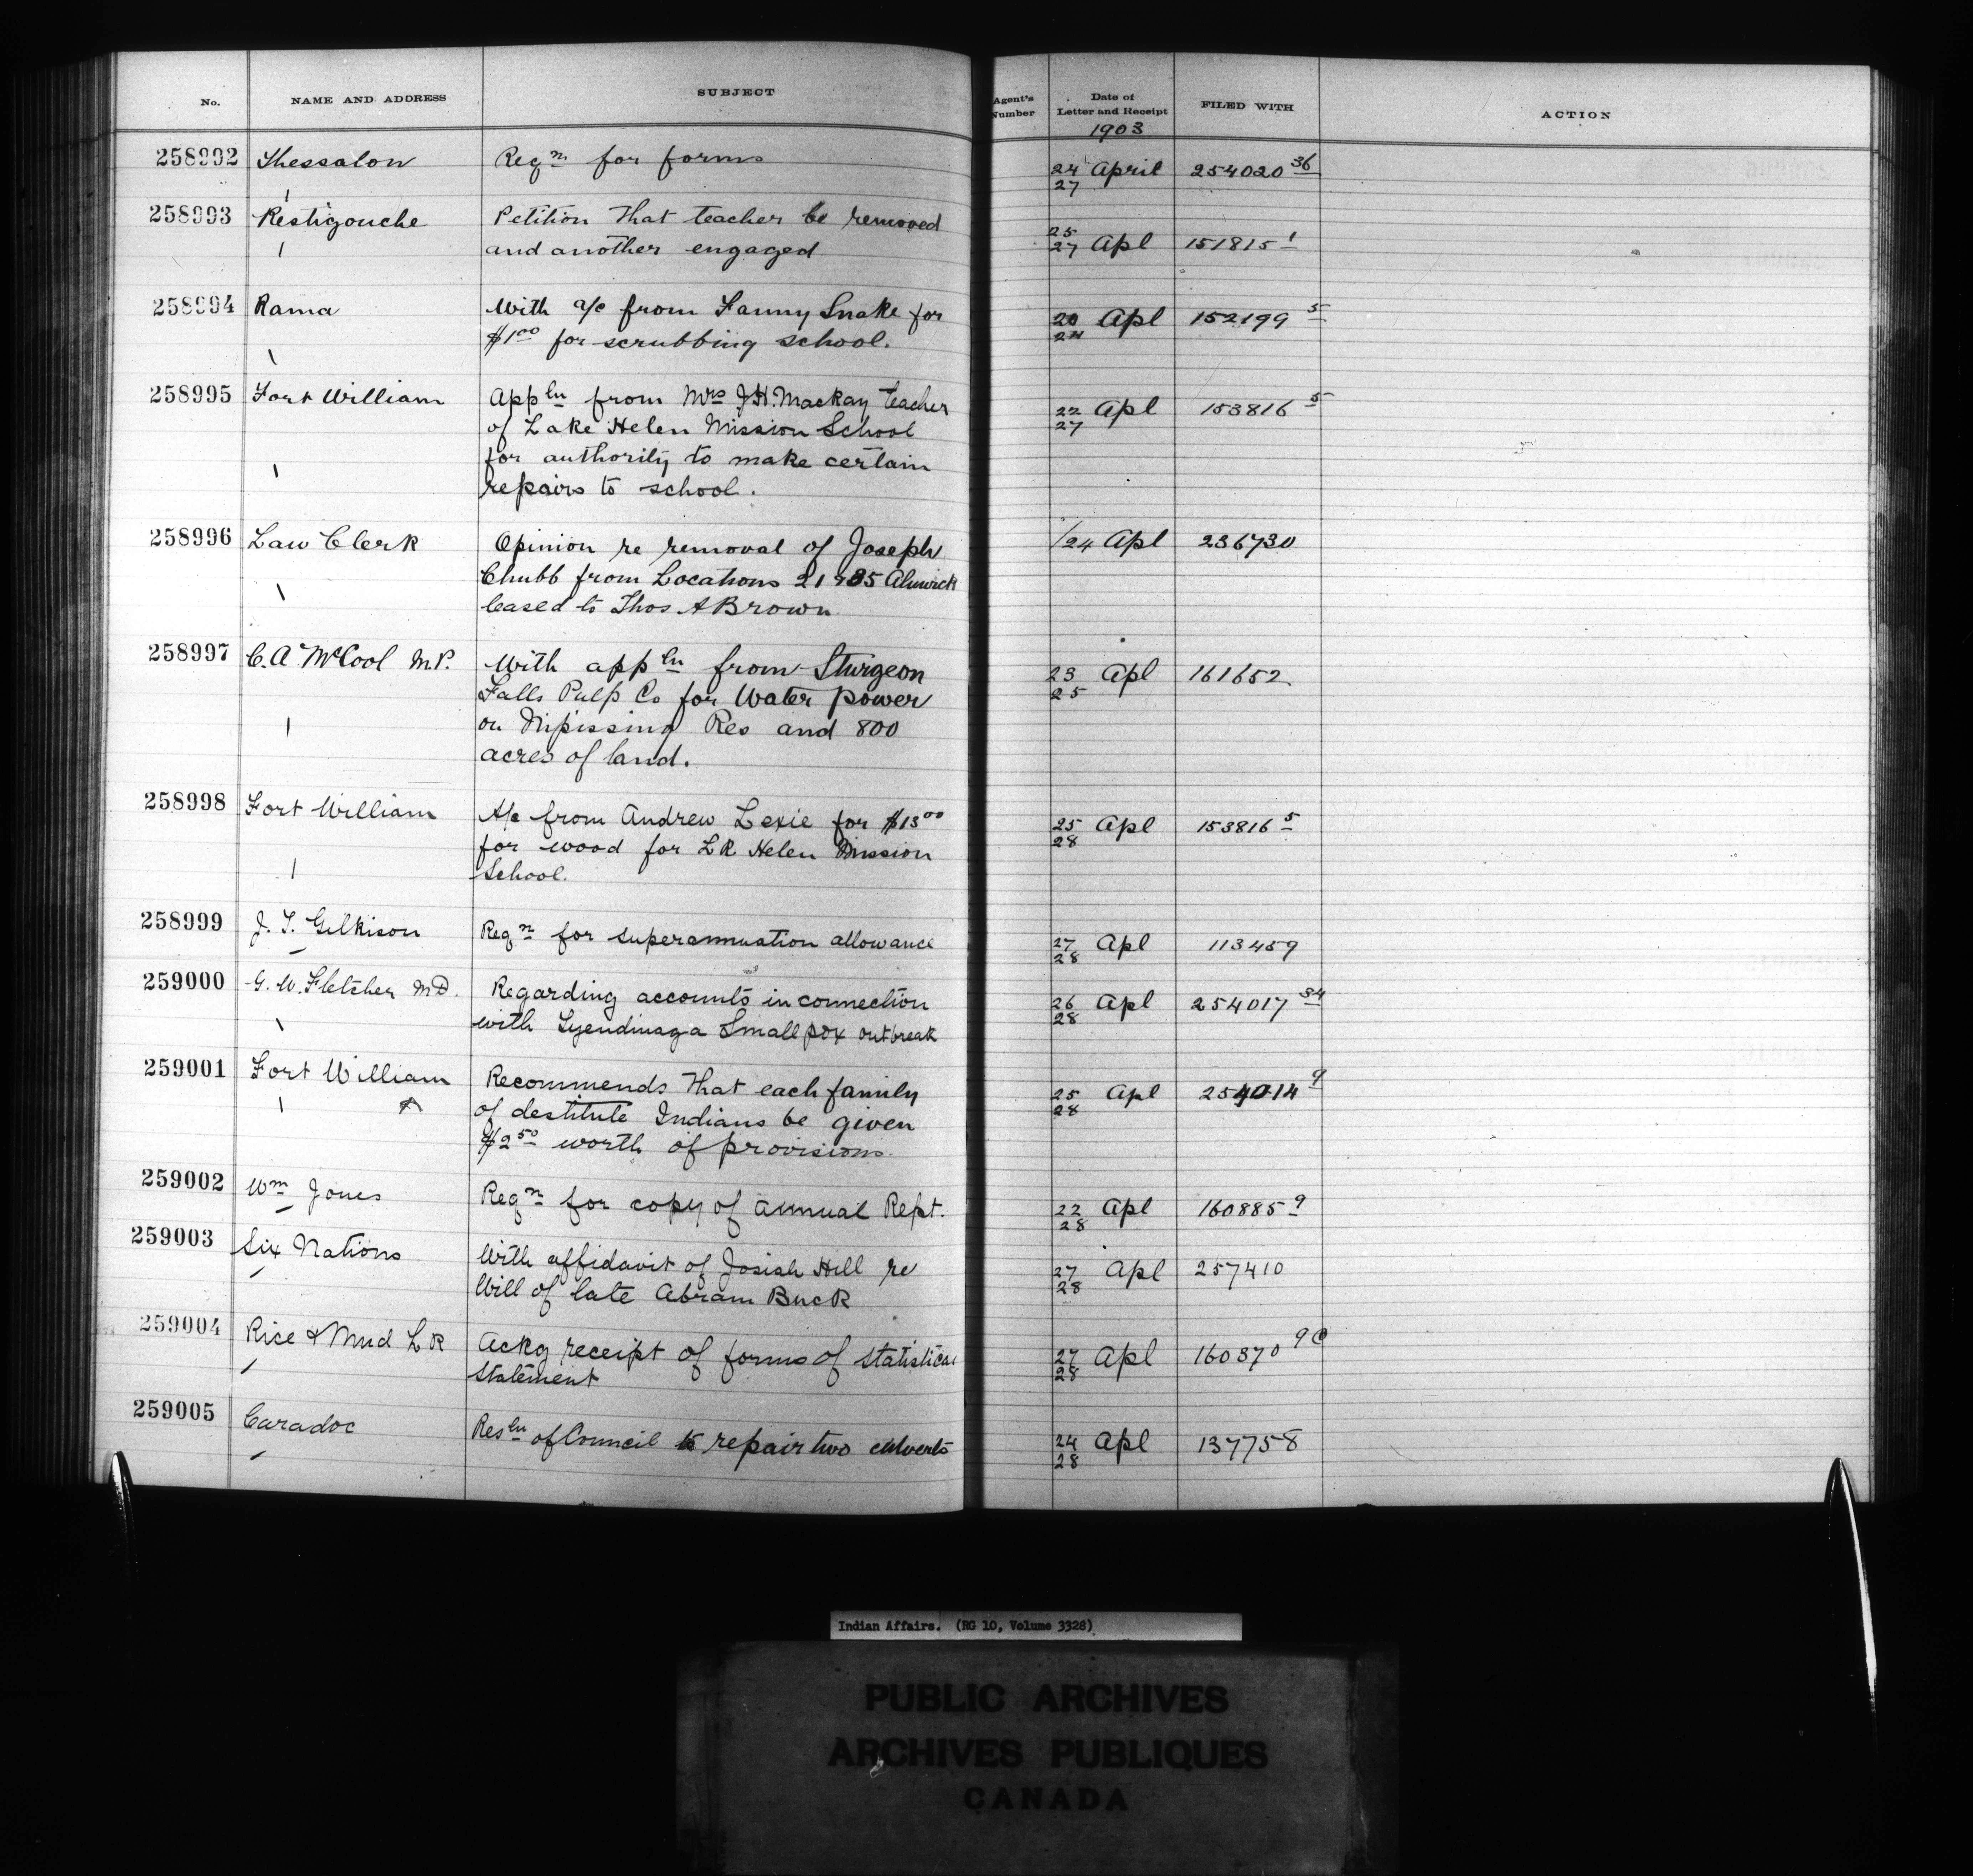 No. NAME AND ADDRESS SUBJECT Agent's Number Date of Letter and Receipt FILED WITH ACTION
1903
258992 Thessalon Reqn for forms 24/27 April 254020 36
258993 Restigouche Petition that teacher be removed
and another engaged 25/27 Apl 151815 1
258994 Rama With a/c from Fanny Snake for 20/24 Apl 152199 5
$1 00 for scrubbing school.
258995 Fort William Appln from Mrs J.H. Mackay teacher 22/27 Apl 153816 5
of Lake Helen Mission School
for authority to make certain
repairs to school.
258996 Law Clerk Opinion re removal of Joseph /24 Apl 236730
Chubb from Locations 21 & 35 Alnwick
leased to Thos A Brown
258997 C. A. McCool M.P. With appln from Sturgeon 23/25 Apl 161652
Falls Pulp Co for Water power
on Nipissing Res and 800
acres of land.
258998 Fort William A/c from Andrew Lexie for $13 00 25/28 Apl 153816 5
for wood for LK Helen Mission
School.
258999 J. T. Gilkison Reqn for superannuation allowance 27/28 Apl 113459
259000 G. W. Fletcher MD. Regarding accounts in connection 26/28 Apl 254017 34
with Tyendinaga Small pox outbreak
259001 Fort William Recommends that each family 25/28 Apl 254014 9
of destitute Indians be given
$2 50 worth of provisions
259002 Wm Jones Reqn for copy of annual Rept. 22/28 Apl 160885 9
259003 Six Nations With affidavit of Josiah Hill re 27/28 Apl 257410
Will of late Abram Buck
259004 Rice & Mud LK Ackg receipt of forms of statistical 27/28 Apl 160370 9
statement
259005 Caradoc Resln of Council to repair two culverts 24/28 Apl 137758
Indian Affairs. (RG 10, Volume 3328)
PUBLIC ARCHIVES
ARCHIVES PUBLIQUES
CANADA